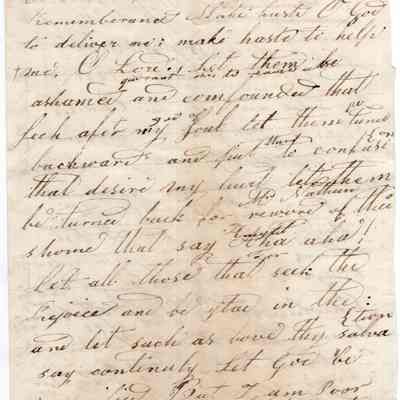 Remembrance Make haste O God
to deliver me: make haste to help
me, O Lord! Let them be
ashamed and confounded that
seek after my Soul let them be turned
backward and put to confusion
that desire my hurt let them
be turned back for reward of their
shame that say Aha aha!
Let all those that seek the
rejoice and be glad in the:
and let such as love thy salvation
say continuly Let God be
But I am Poor